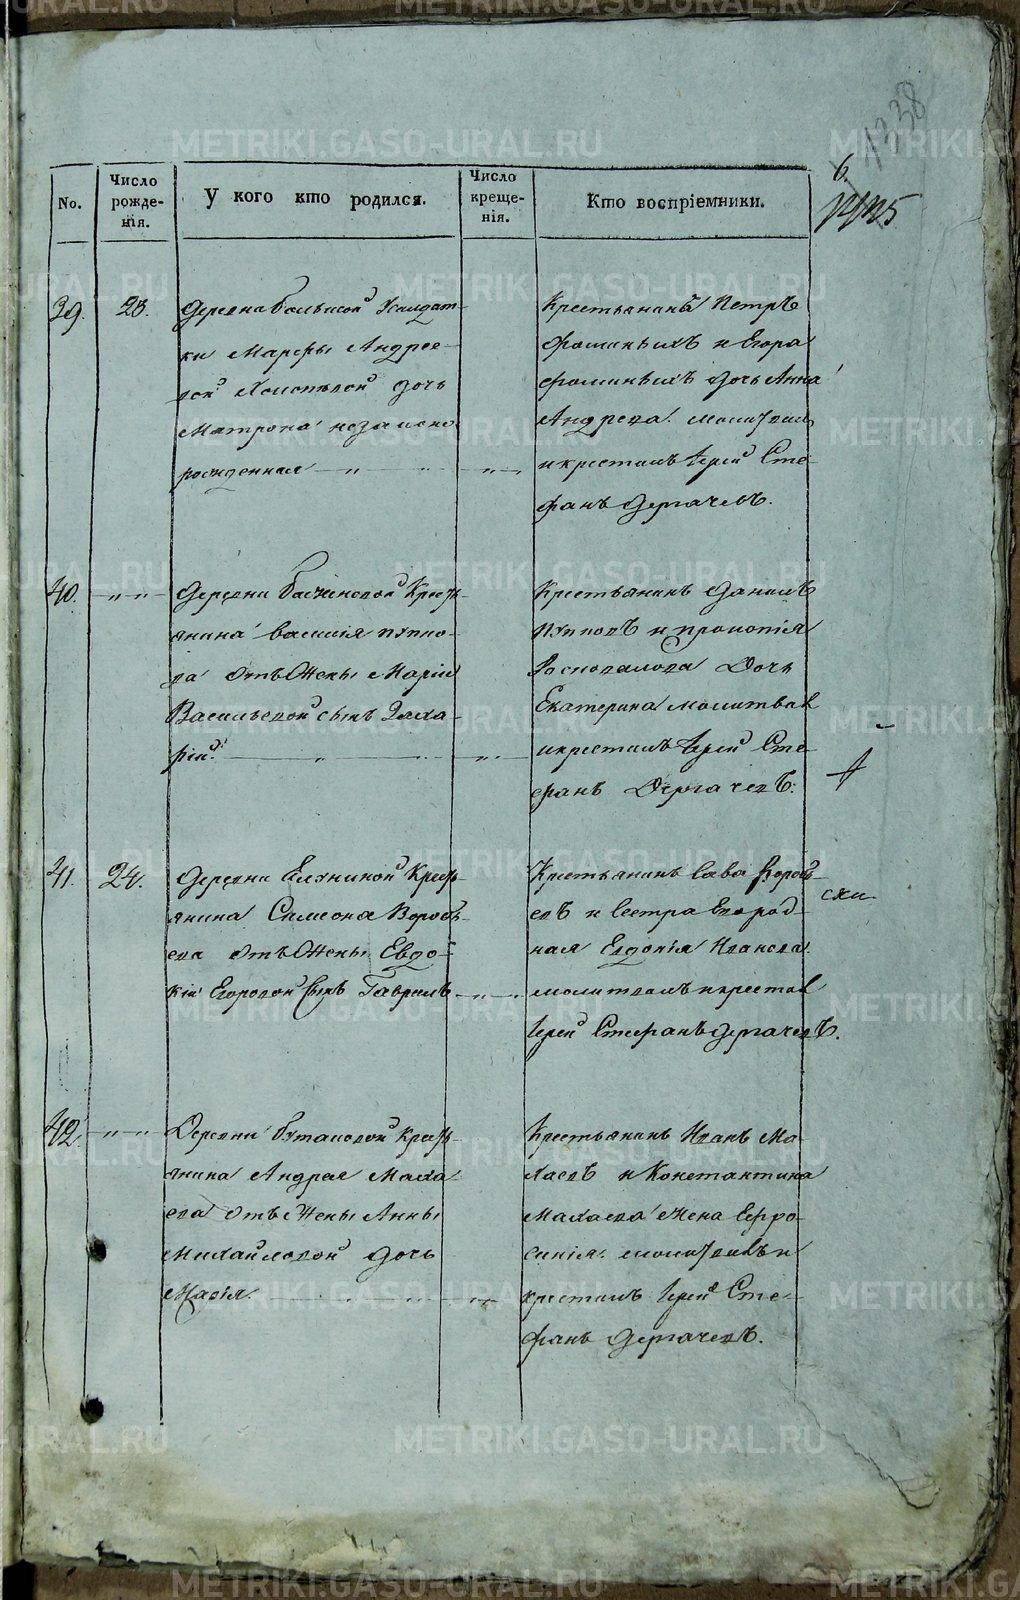 1338
6.
No.
Число рожде-нія.
У кого кто родился.
Число креще-нія.
Кто воспріемники.
39.
23.
Деревна
ки Марѳы Андрее-
вой дочь
Матрона незаконо
рожденная
Крестьянинъ Петръ
и Егора
дочь Анна
Андреева. молитвил
и крестилъ Іерей Сте-
фанъ Дергачевъ.
40.
Деревни Кресть
янина Василія Пупко-
ва отъ Жены Маріи
Васильевой сынъ Заха-
рій.
Крестьянинъ Данилъ
Пупковъ и Прокопія
Дочь
Екатерина молитвов
и крестилъ Іерей Сте-
фанъ Дергачевъ.
41.
24.
Деревни Елкиной Кресть
янина Симеона Воробь-
ева отъ Жены Евдо-
кіи Егоровой сынъ Гаврилъ
Крестьянинъ Сава Вороб-
евъ и Сестра Егород-
ная Евдокія Иванова.
молитвилъ и крестил
Іерей Стефанъ Дергачевъ.
42.
Деревни Кресть
янина Андрея Маха
ева отъ Жены Анны
Михайловой дочь
Марія.
Крестьянинъ Иванъ Ма-
хаевъ и Константина
Махаева жена Ефро-
синія. молитвилъ и
крестилъ Іерей Сте-
фанъ Дергачевъ.
METRIKI.GASO-URAL.RU